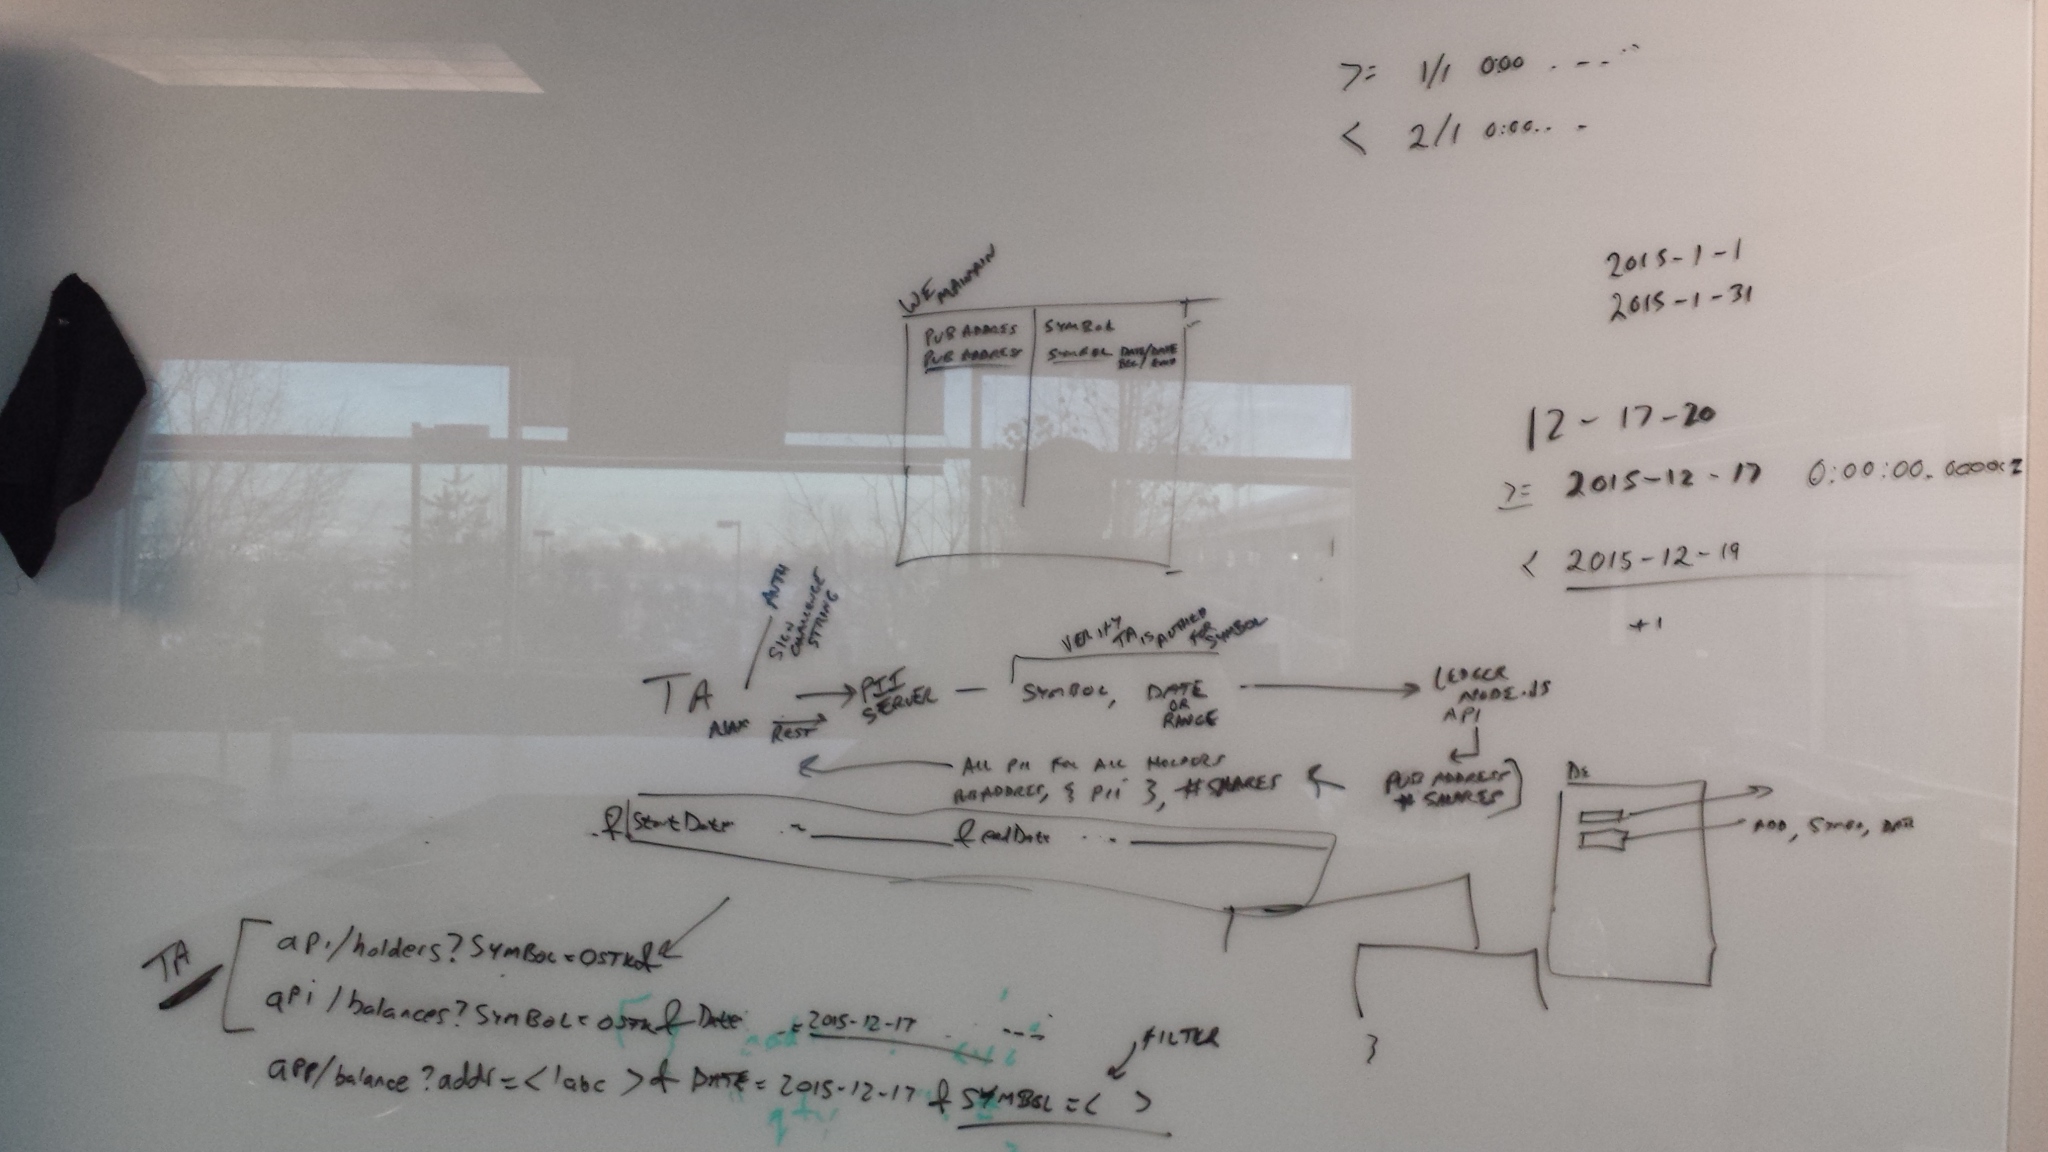 >= 1/1 0:00 . - - . .
< 2/1 0:00.. -
2015-1-1
2015-1-31
12-17-20
>= 2015-12-17 0:00:00.00000Z
< 2015-12-19
+1
WE MAINTAIN
PUB ADDRESS SYMBOL
PUB ADDRESS SYMBOL DATE/DATE
END
AUTH
SIGN
CHALLENGE
STRING
VERIFY TA IS AUTHED FOR SYMBOL
TA → PII SERVER — SYMBOL, DATE OR RANGE → LEDGER NODE.JS API
REST
ALL PII FOR ALL HOLDERS
PUB ADDRESS, { PII }, # SHARES
PUB ADDRESS
# SHARES
& StartDate ~ & endDate ...
ADD, SYMBOL, DATE
TA
api/holders?SYMBOL=OSTK&
api/balances?SYMBOL=OSTK& Date = 2015-12-17
FILTER
app/balance?addr=<1abc >& DATE=2015-12-17 & SYMBOL=< >
qty